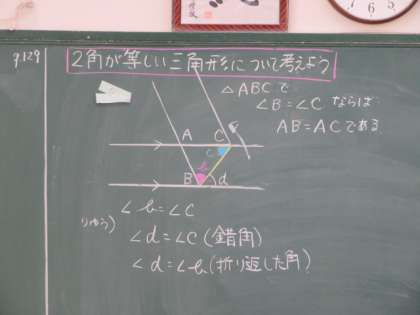 P.129
2角が等しい三角形について考えよう
△ABCで
∠B=∠Cならば
AB=ACである
A
C
c
b
B
d
∠b=∠c
りゆう)
∠d=∠c(錯角)
∠d=∠b(折り返した角)